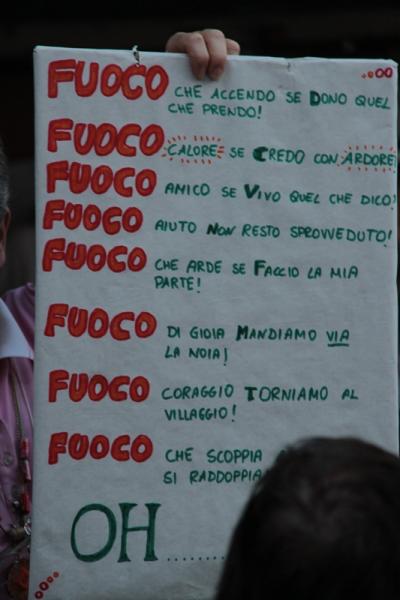 FUOCO CHE ACCENDO SE DONO QUEL
CHE PRENDO!
FUOCO CALORE SE CREDO CON ARDORE
FUOCO AMICO SE VIVO QUEL CHE DICO!
FUOCO AIUTO NON RESTO SPROVVEDUTO!
FUOCO CHE ARDE SE FACCIO LA MIA
PARTE!
FUOCO DI GIOIA MANDIAMO VIA
LA NOIA!
FUOCO CORAGGIO TORNIAMO AL
VILLAGGIO!
FUOCO CHE SCOPPIA
SI RADDOPPIA
OH........